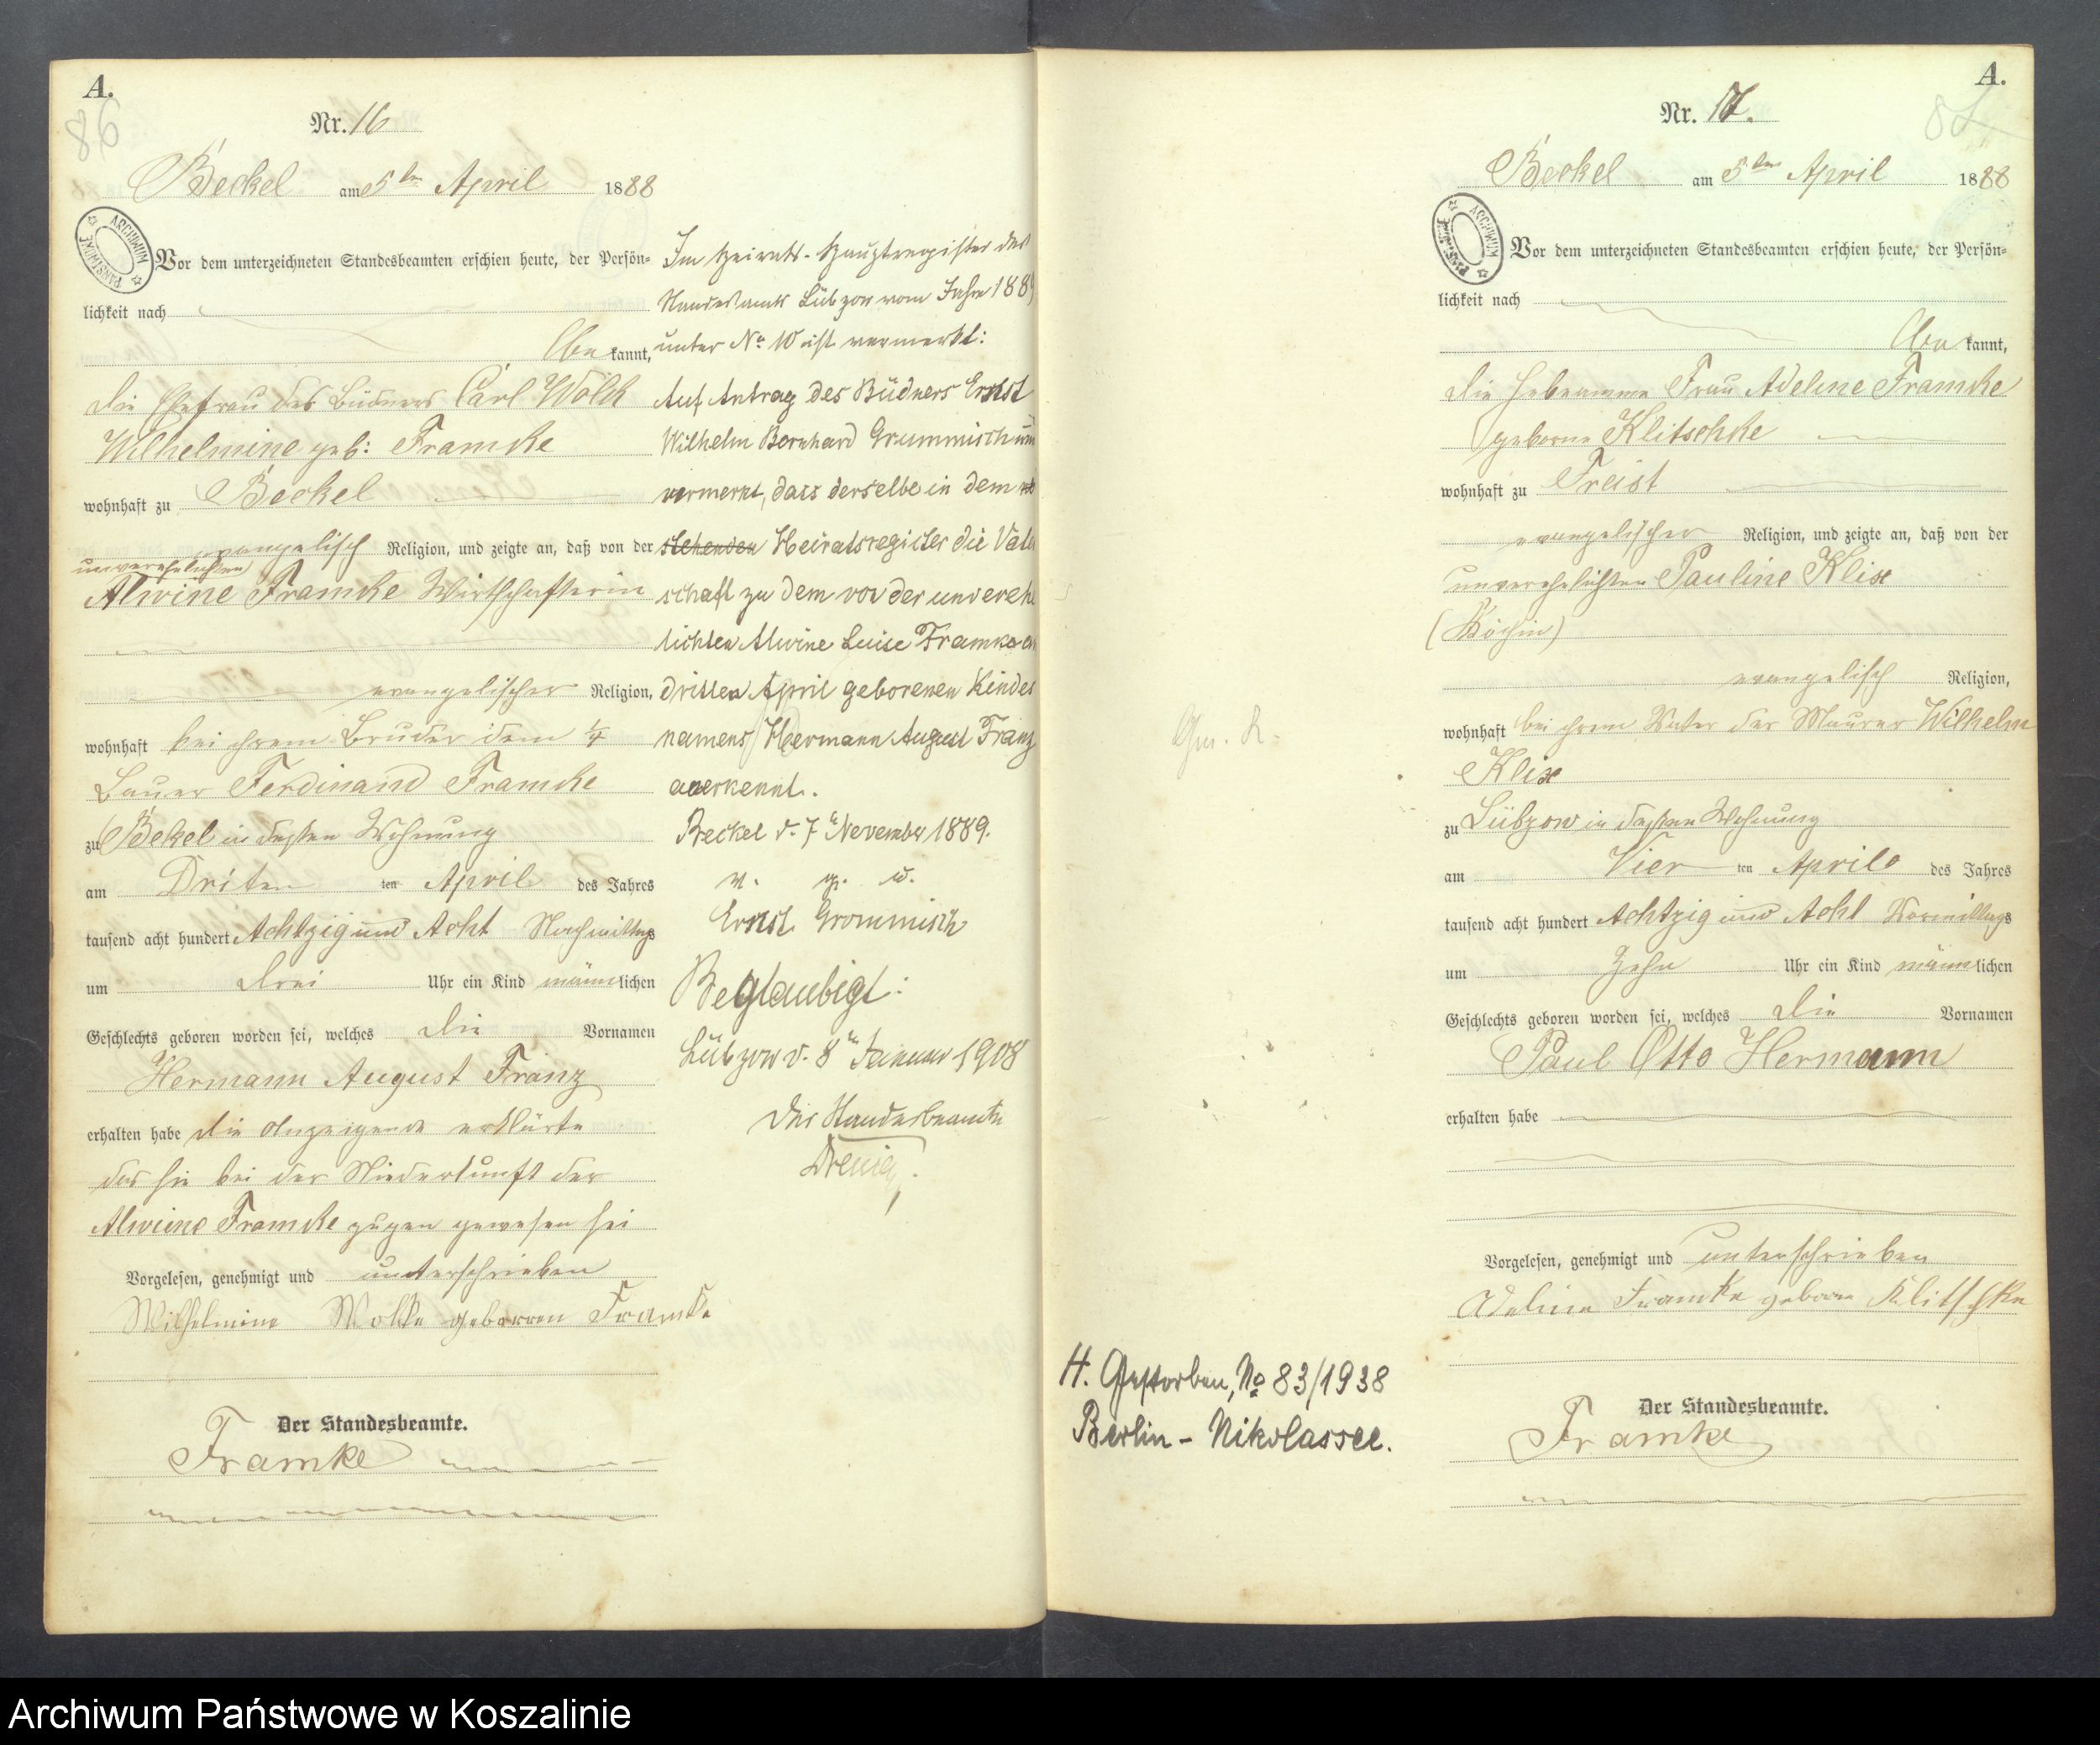 A.
86
Nr. 16
Beckel am 5ten April 1888
ARCHIWUM PAŃSTWOWE
Vor dem unterzeichneten Standesbeamten erschien heute, der Persön-
lichkeit nach
be kannt,
die Ehefrau des Büdners Carl Wolck
Wilhelmine geb: Framcke
wohnhaft zu Beckel
evangelisch Religion, und zeigte an, daß von der
unverehelichten
Alwine Framcke Wirthschafterin
evangelischer Religion,
wohnhaft bei ihrem Bruder dem 1/4
Bauer Ferdinand Framcke
zu Bekel in dessen Wohnung
am Driten ten April des Jahres
tausend acht hundert Achtzig und Acht Nachmittags
um drei Uhr ein Kind männlichen
Geschlechts geboren worden sei, welches die Vornamen
Hermann August Franz
erhalten habe die Anzeigende erklärte
das sie bei der Niederkunft der
Alwine Framcke zugen gewesen sei
Vorgelesen, genehmigt und unterschrieben
Wilhelmine Wolke geborren Framke
Der Standesbeamte.
Framke
Im Heirats-Hauptregister des
Standesamts Lübzow vom Jahre 188
unter No 10 ist vermerkt:
Auf Antrag des Büdners Ernst
Wilhelm Bernhard Grummisch
vermerkt, dass derselbe in dem
stehenden Heiratsregister die Vater
schaft zu dem von der unvereh
lichten Alwine Luise Framke
dritten April geborenen Kindes
namens Hermann August Franz
anerkennt.
Beckel d. 7n November 1889.
v. g. u.
Ernst Grommisch
Beglaubigt:
Lübzow d. 8n Januar 1908
Der Standesbeamte
A.
Nr. 17.
Beckel am 5ten April 1888
ARCHIWUM PAŃSTWOWE
Vor dem unterzeichneten Standesbeamten erschien heute, der Persön-
lichkeit nach
be kannt,
die Hebeamme Frau Adeline Framcke
geborne Klitschke
wohnhaft zu Freist
evangelischer Religion, und zeigte an, daß von der
unverehelichten Pauline Klix
(Köchin)
evangelisch Religion,
wohnhaft bei ihrem Vater der Maurer Wilhelm
Klix
zu Lübzow in dessen Wohnung
am Vier ten Aprile des Jahres
tausend acht hundert Achtzig und Acht Vormittags
um Zehn Uhr ein Kind männlichen
Geschlechts geboren worden sei, welches die Vornamen
Paul Otto Hermann
erhalten habe
Vorgelesen, genehmigt und unterschrieben
Adeline Framke geboren Klitschke
Der Standesbeamte.
Framke
H. Gestorben, No 83/1938
Berlin-Nikolassee.
Archiwum Państwowe w Koszalinie